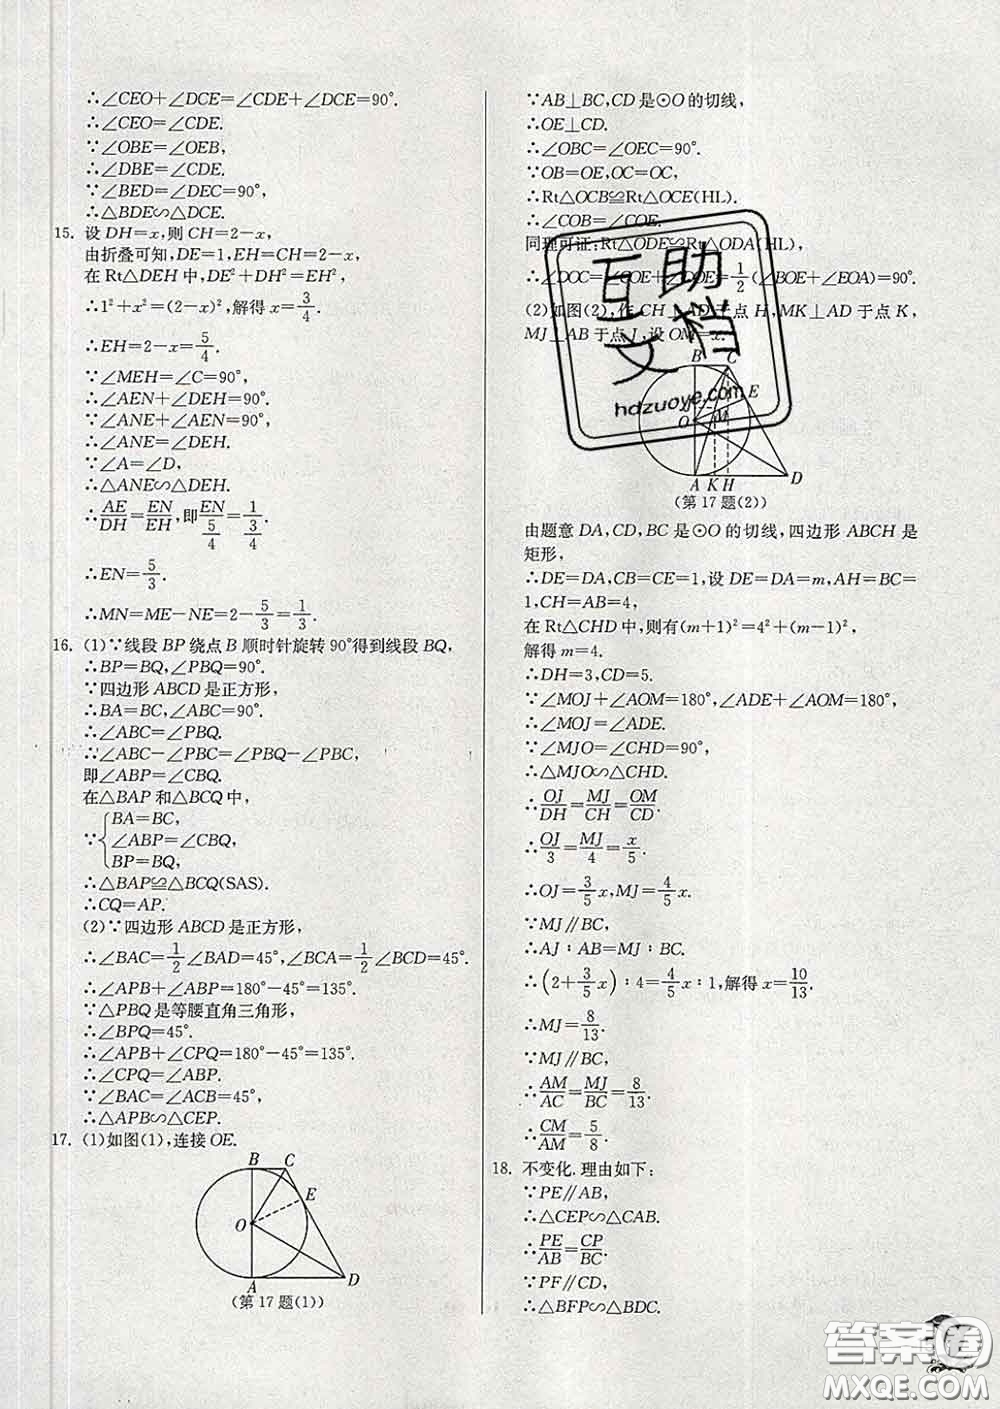 ∴∠CEO+∠DCE=∠CDE+∠DCE=90°.
∴∠CEO=∠CDE.
∵∠OBE=∠OEB,
∴∠DBE=∠CDE.
∵∠BED=∠DEC=90°,
∴△BDE∽△DCE.
15. 设DH=x,则CH=2-x,
由折叠可知,DE=1,EH=CH=2-x,
在Rt△DEH中,DE²+DH²=EH²,
∴1²+x²=(2-x)²,解得x=3/4.
∴EH=2-x=5/4.
∵∠MEH=∠C=90°,
∴∠AEN+∠DEH=90°.
∵∠ANE+∠AEN=90°,
∴∠ANE=∠DEH.
∵∠A=∠D,
∴△ANE∽△DEH.
∴AE/DH=EN/EH,即EN/(5/4)=1/(3/4).
∴EN=5/3.
∴MN=ME-NE=2-5/3=1/3.
16. (1)∵线段BP绕点B顺时针旋转90°得到线段BQ,
∴BP=BQ,∠PBQ=90°.
∵四边形ABCD是正方形,
∴BA=BC,∠ABC=90°.
∴∠ABC=∠PBQ.
∴∠ABC-∠PBC=∠PBQ-∠PBC,
即∠ABP=∠CBQ.
在△BAP和△BCQ中,
∵{BA=BC,
∠ABP=∠CBQ,
BP=BQ,
∴△BAP≌△BCQ(SAS).
∴CQ=AP.
(2)∵四边形ABCD是正方形,
∴∠BAC=1/2∠BAD=45°,∠BCA=1/2∠BCD=45°.
∴∠APB+∠ABP=180°-45°=135°.
∵△PBQ是等腰直角三角形,
∴∠BPQ=45°.
∴∠APB+∠CPQ=180°-45°=135°.
∴∠CPQ=∠ABP.
∵∠BAC=∠ACB=45°,
∴△APB∽△CEP.
17. (1)如图(1),连接OE.
B C
E
O
A D
(第17题(1))
∵AB⊥BC,CD是⊙O的切线,
∴OE⊥CD.
∴∠OBC=∠OEC=90°.
∵OB=OE,OC=OC,
∴Rt△OCB≌Rt△OCE(HL).
∴∠COB=∠COE.
同理可证:Rt△ODE≌Rt△ODA(HL),
∴∠DOC=∠COE+∠DOE=1/2(∠BOE+∠EOA)=90°.
(2)如图(2),作CH⊥AD于点H,MK⊥AD于点K,
MJ⊥AB于点J,设OM=x.
互助文档
hdzuoye.com
C
E
J
O M
A K H D
(第17题(2))
由题意DA,CD,BC是⊙O的切线,四边形ABCH是
矩形,
∴DE=DA,CB=CE=1,设DE=DA=m,AH=BC=
1,CH=AB=4,
在Rt△CHD中,则有(m+1)²=4²+(m-1)²,
解得m=4.
∴DH=3,CD=5.
∵∠MOJ+∠AOM=180°,∠ADE+∠AOM=180°,
∴∠MOJ=∠ADE.
∵∠MJO=∠CHD=90°,
∴△MJO∽△CHD.
∴OJ/DH=MJ/CH=OM/CD.
∴OJ/3=MJ/4=x/5.
∴OJ=3/5x,MJ=4/5x.
∵MJ∥BC,
∴AJ∶AB=MJ∶BC.
∴(2+3/5x)∶4=4/5x∶1,解得x=10/13.
∴MJ=8/13.
∵MJ∥BC,
∴AM/AC=MJ/BC=8/13.
∴CM/AM=5/8.
18. 不变化.理由如下:
∵PE∥AB,
∴△CEP∽△CAB.
∴PE/AB=CP/BC.
∵PF∥CD,
∴△BFP∽△BDC.
答案圈
MXQE.COM